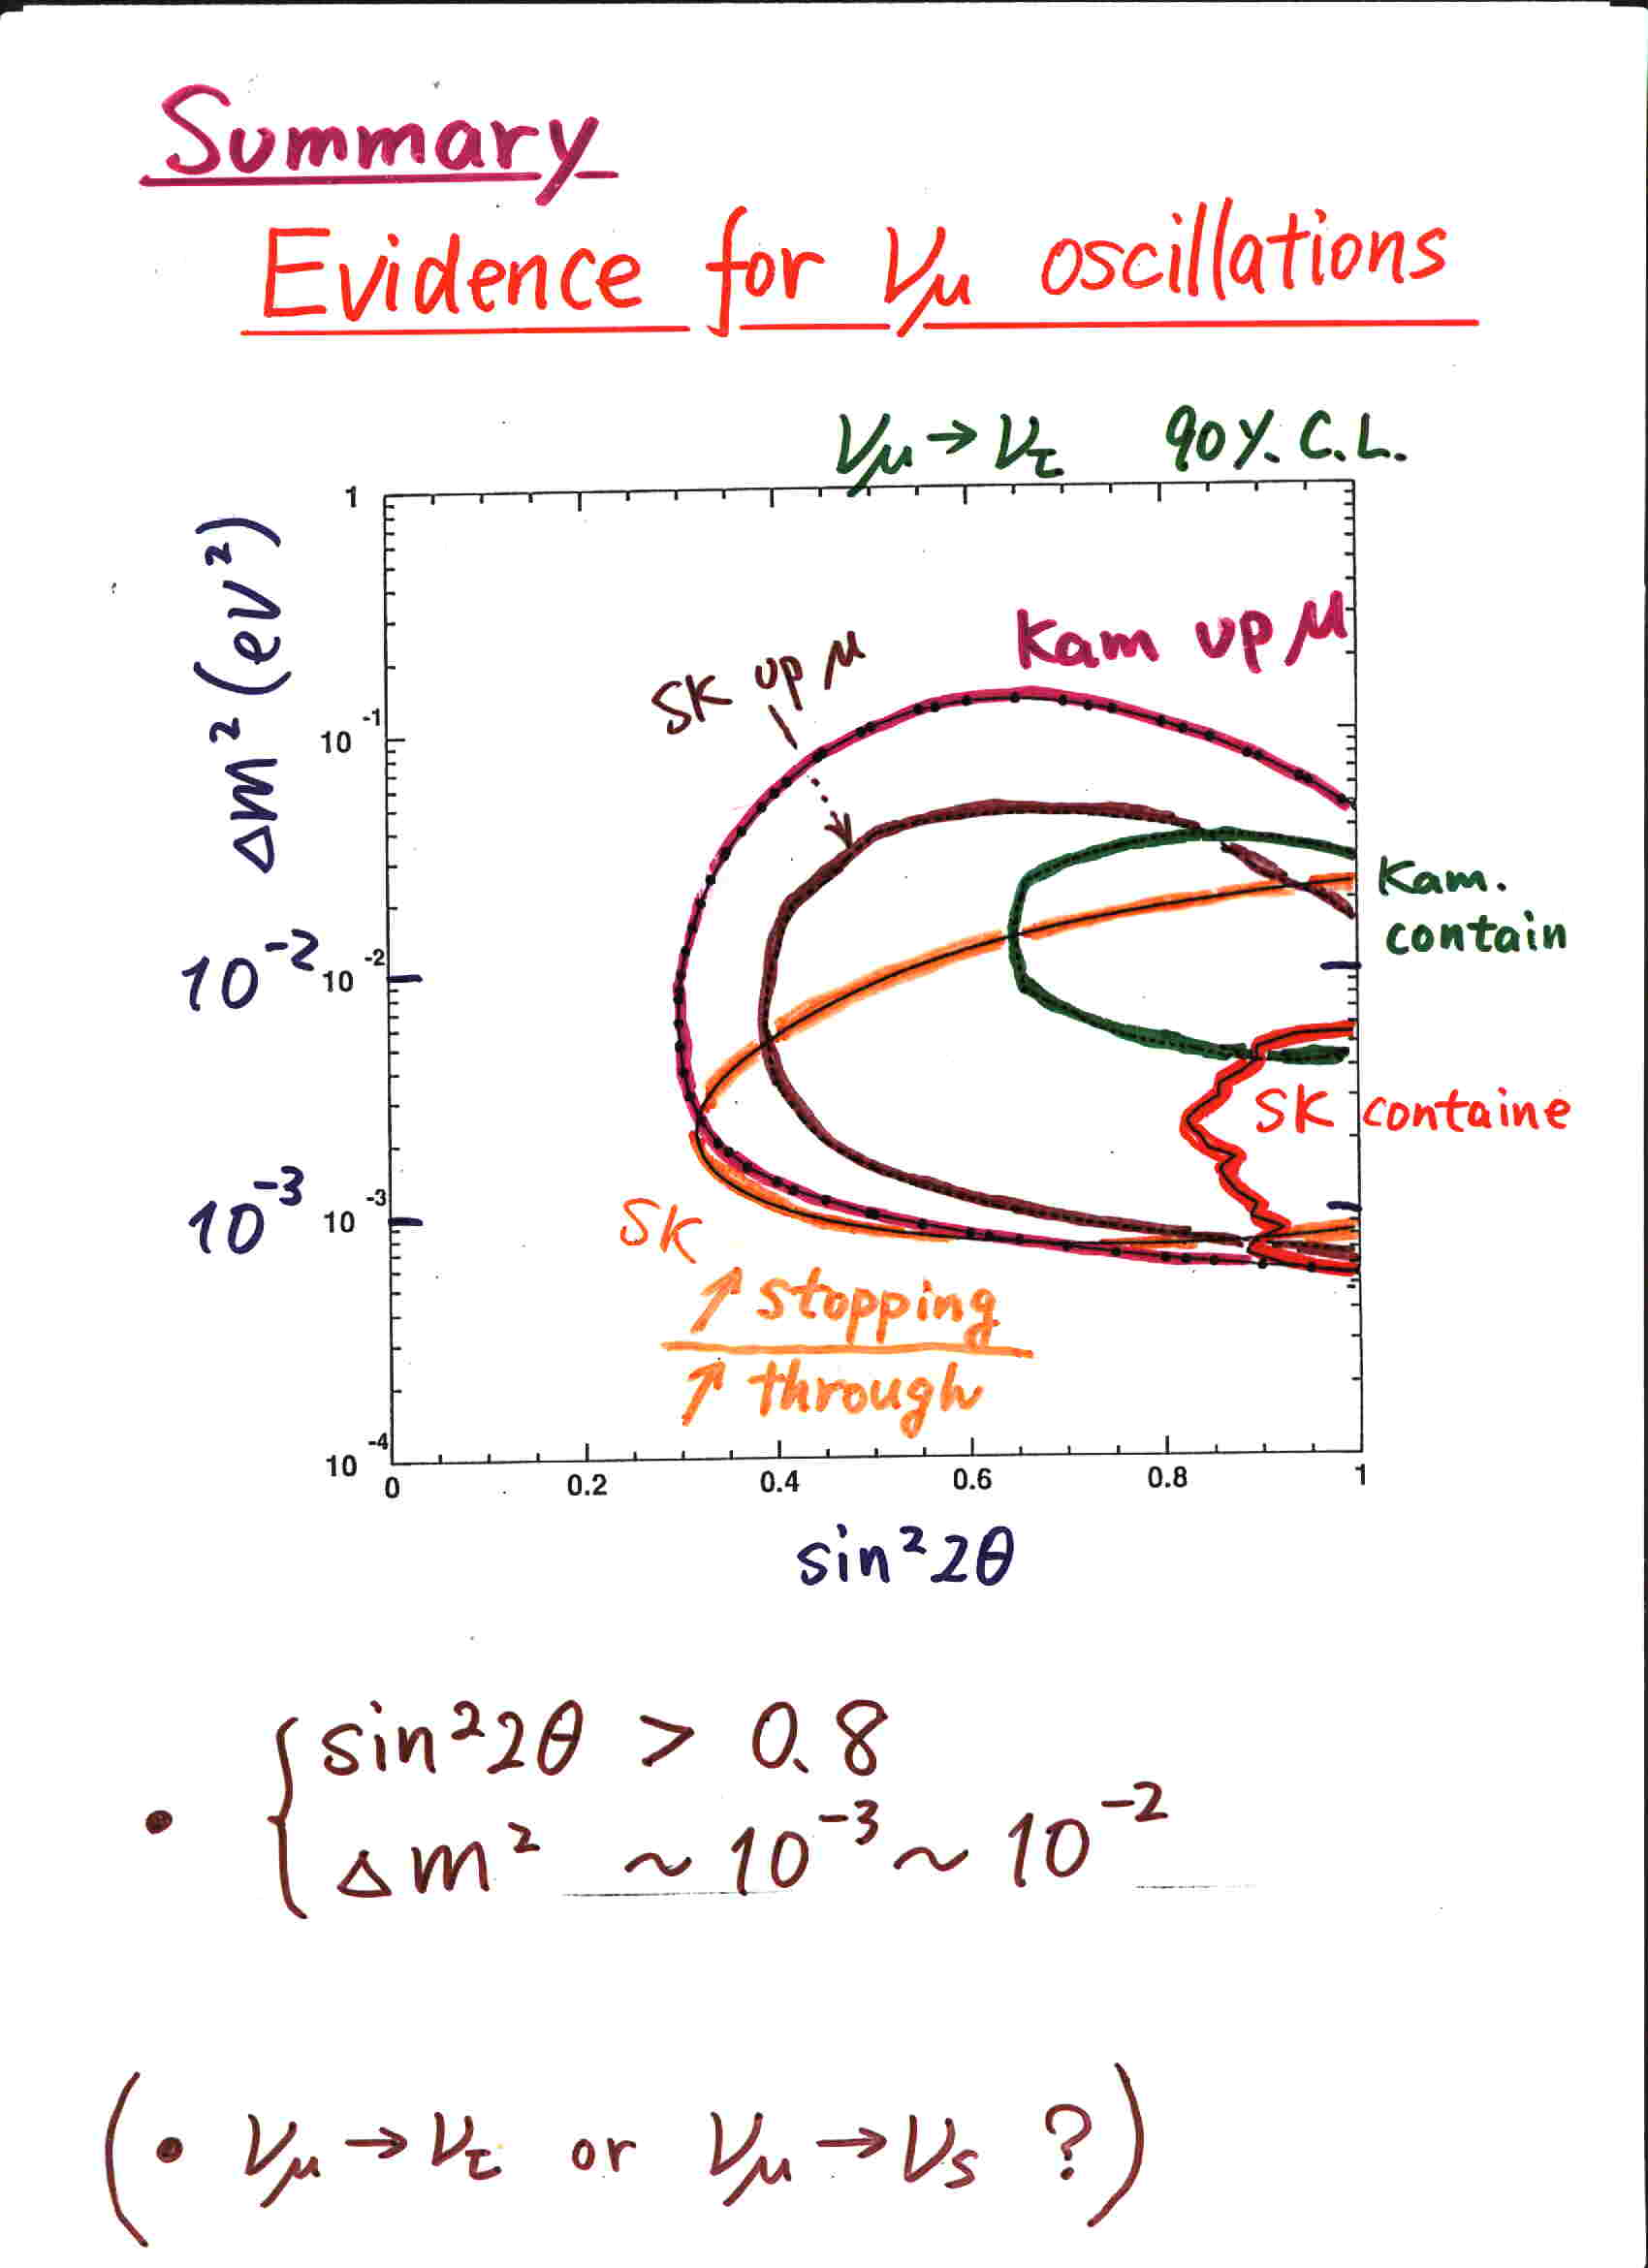 Summary
Evidence for νμ oscillations
νμ → ντ 90%. C.L.
Δm² (eV²)
1
10⁻¹
10⁻² 10⁻²
10⁻³ 10⁻³
10⁻⁴
Kam up μ
SK up μ
Kam.
contain
SK containe
SK
↑ stopping
↑ through
0 0.2 0.4 0.6 0.8 1
sin²2θ
• { sin²2θ > 0.8
Δm² ~ 10⁻³ ~ 10⁻²
(• νμ → ντ or νμ → νs ?)